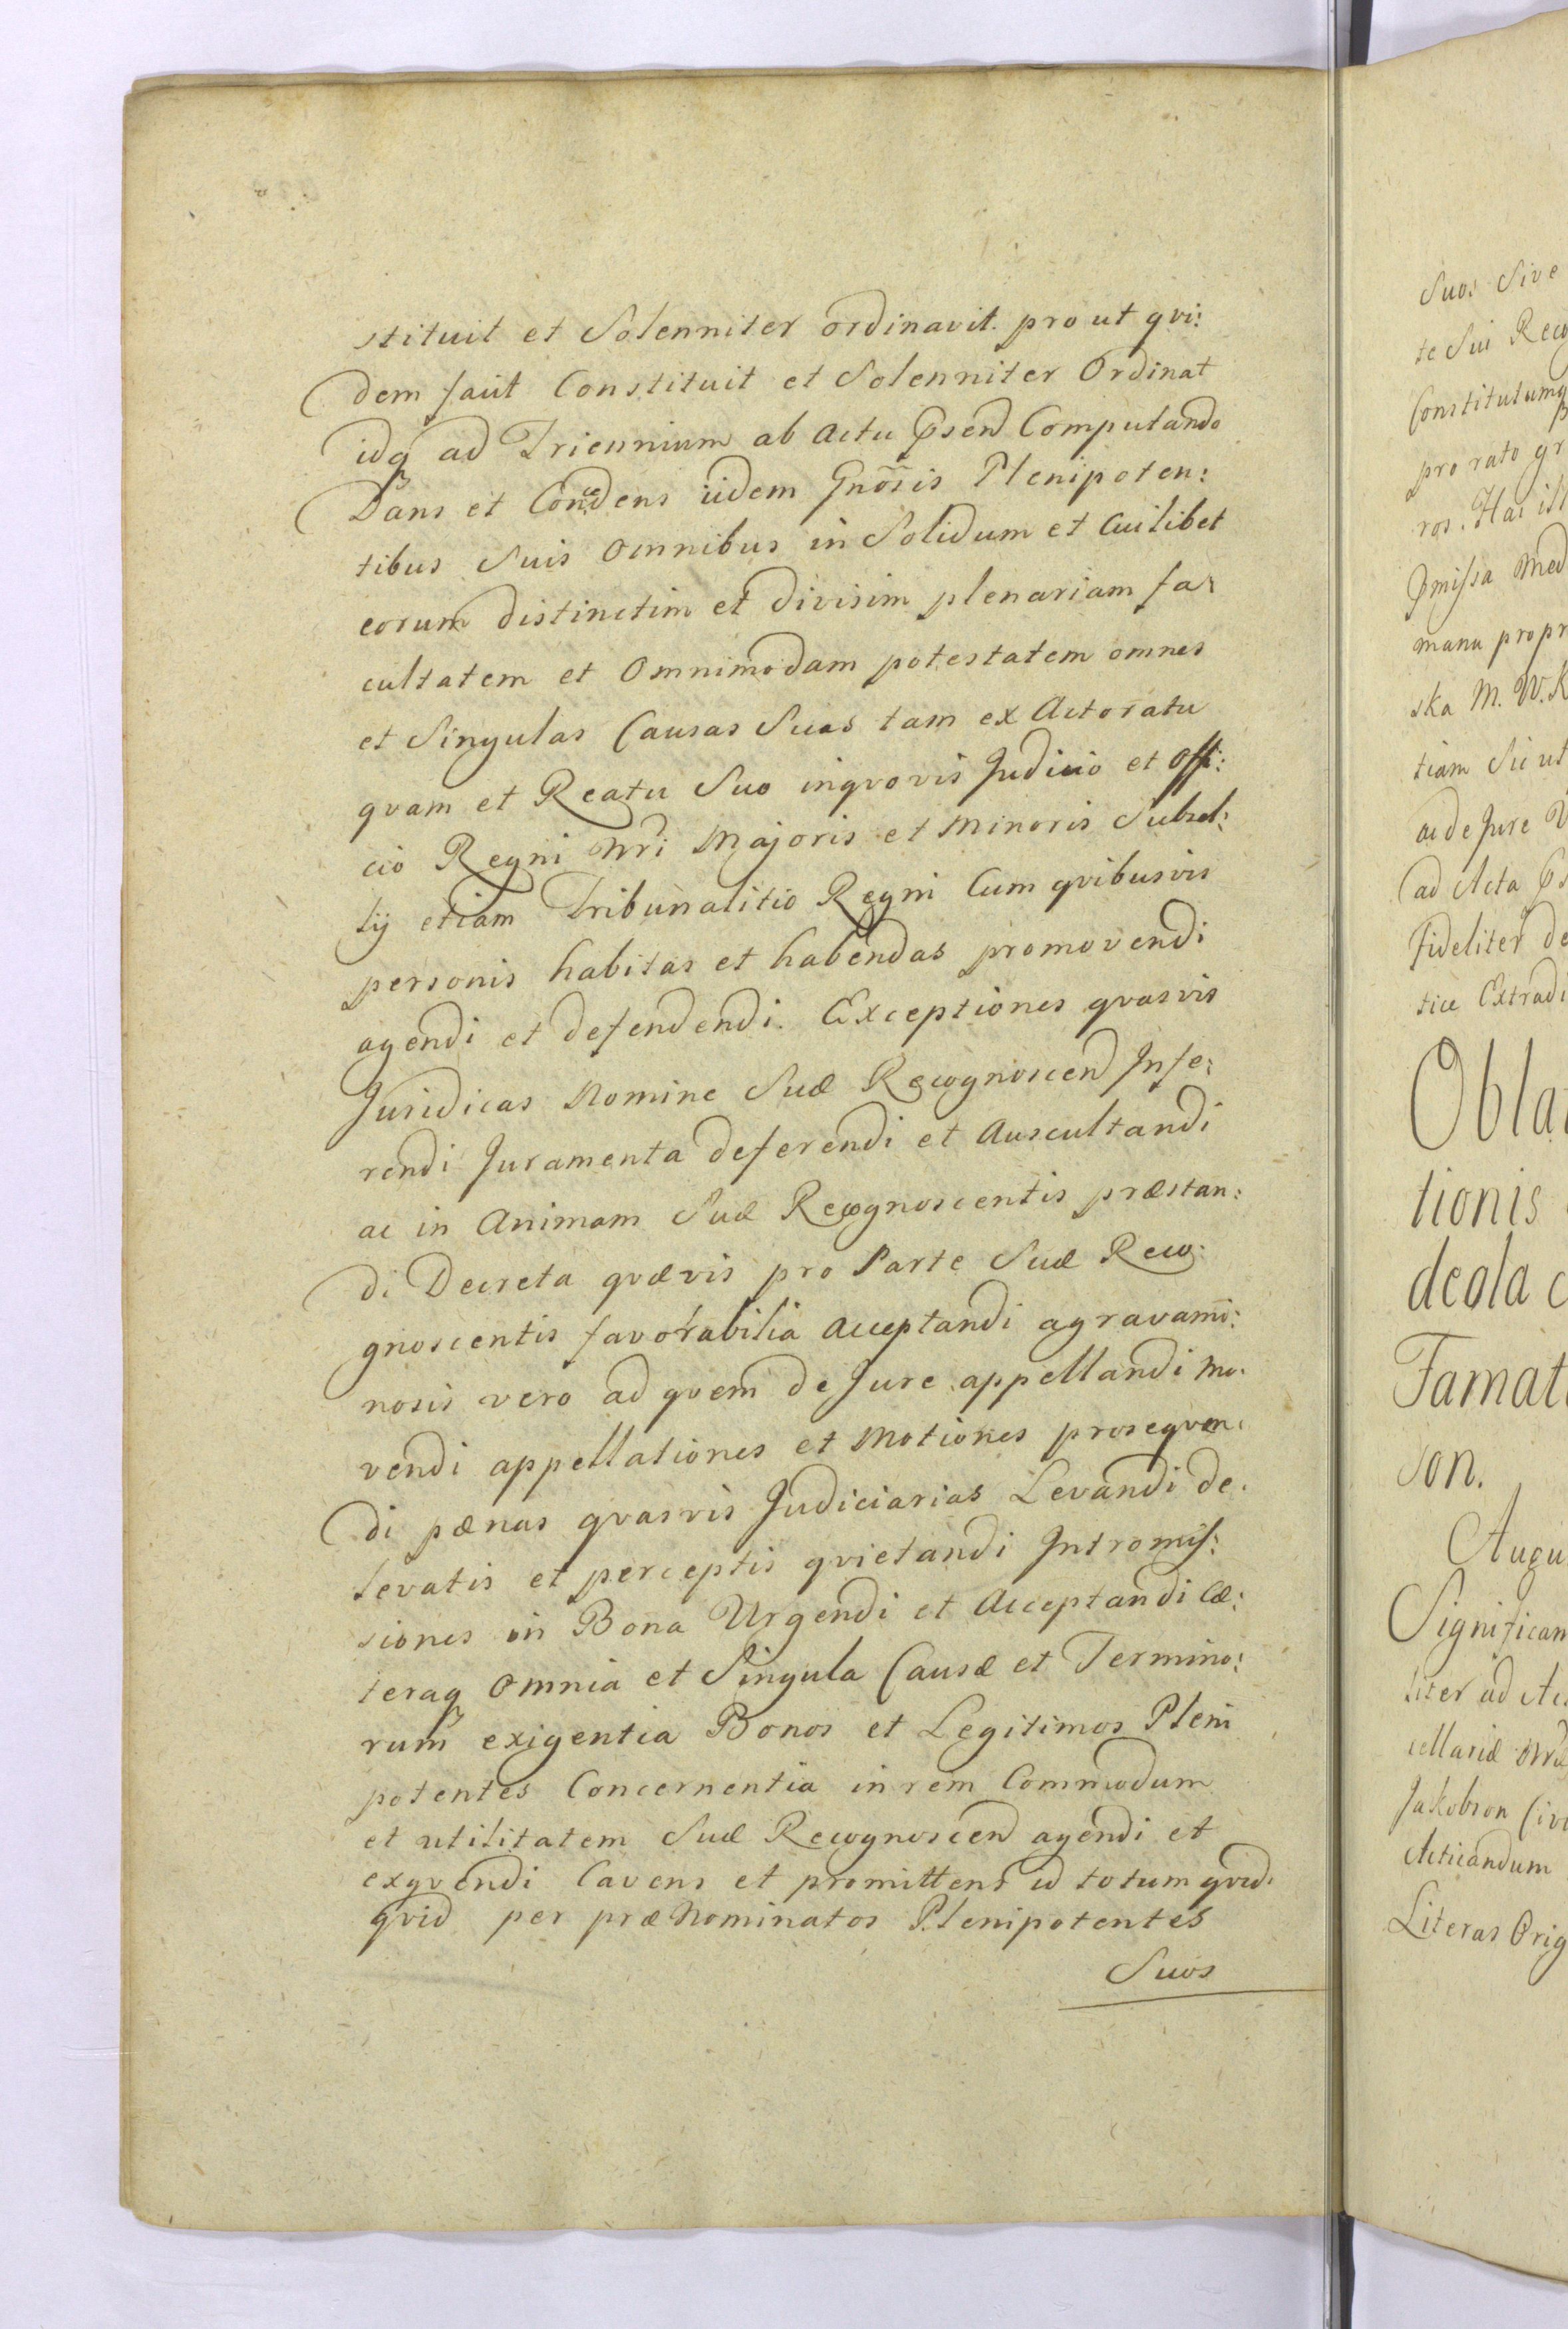 stituit et Solenniter ordinavit. prout qvi:
dem facit Constituit et Solenniter Ordinat
idq ad Triennium ab Actu Psend Computando
Dans et Concedens iidem Gnosis Plenipoten:
tibus Suis Omnibus in Solidum et Cuilibet
eorum distinctim et divisim plenariam fa:
cultatem et Omnimodam potestatem omnes
et Singulas Causas Suas tam ex Actoratu
qvam et Reatu Suo inqvovis Judicio et Offi:
cio Regni Nri Majoris et Minoris Subsel:
lij etiam Tribunalitio Regni Cum qvibusvis
personis habitas et habendas promovendi
agendi et defendendi. Exceptiones qvasvis
Juridicas Nomine Suæ Recognoscend Infe:
rendi Juramenta deferendi et Auscultandi
ac in Animam Suæ Recognoscentis præstan:
di Decreta qvævis pro Parte Suæ Reco:
gnoscentis favorabilia Acceptandi agravami:
nosis vero ad qvem de Jure appellandi Mo:
vendi appellationes et Motiones proseqven:
di pænas qvasvis Judiciarias Levandi de:
levatis et perceptis qvietandi Intromis:
siones in Bona Urgendi et Acceptandi Cæ:
teraq Omnia et Singula Causæ et Termino:
rum exigentia Bonos et Legitimos Pleni
potentes Concernentia in rem Commodum
et utilitatem Suæ Recognoscend agendi et
exqvendi Cavens et promittens id totum qvid:
qvid per præNominatos Plenipotentes
Suos
Suos Sive
te Sui Reco
Constitutumq
pro rato gr
ros. Hac ist
Pmissa Med
manu propr
ska M. W. K
tiam Sic ut
ac de Jure
ad Acta Ps
Fideliter de
tice Extradi
Obla
tionis
deola c
Famat
son.
Augu
Significam
liter ad Ac
cellariæ
Jakobson Civ
Acticandum
Literas Orig